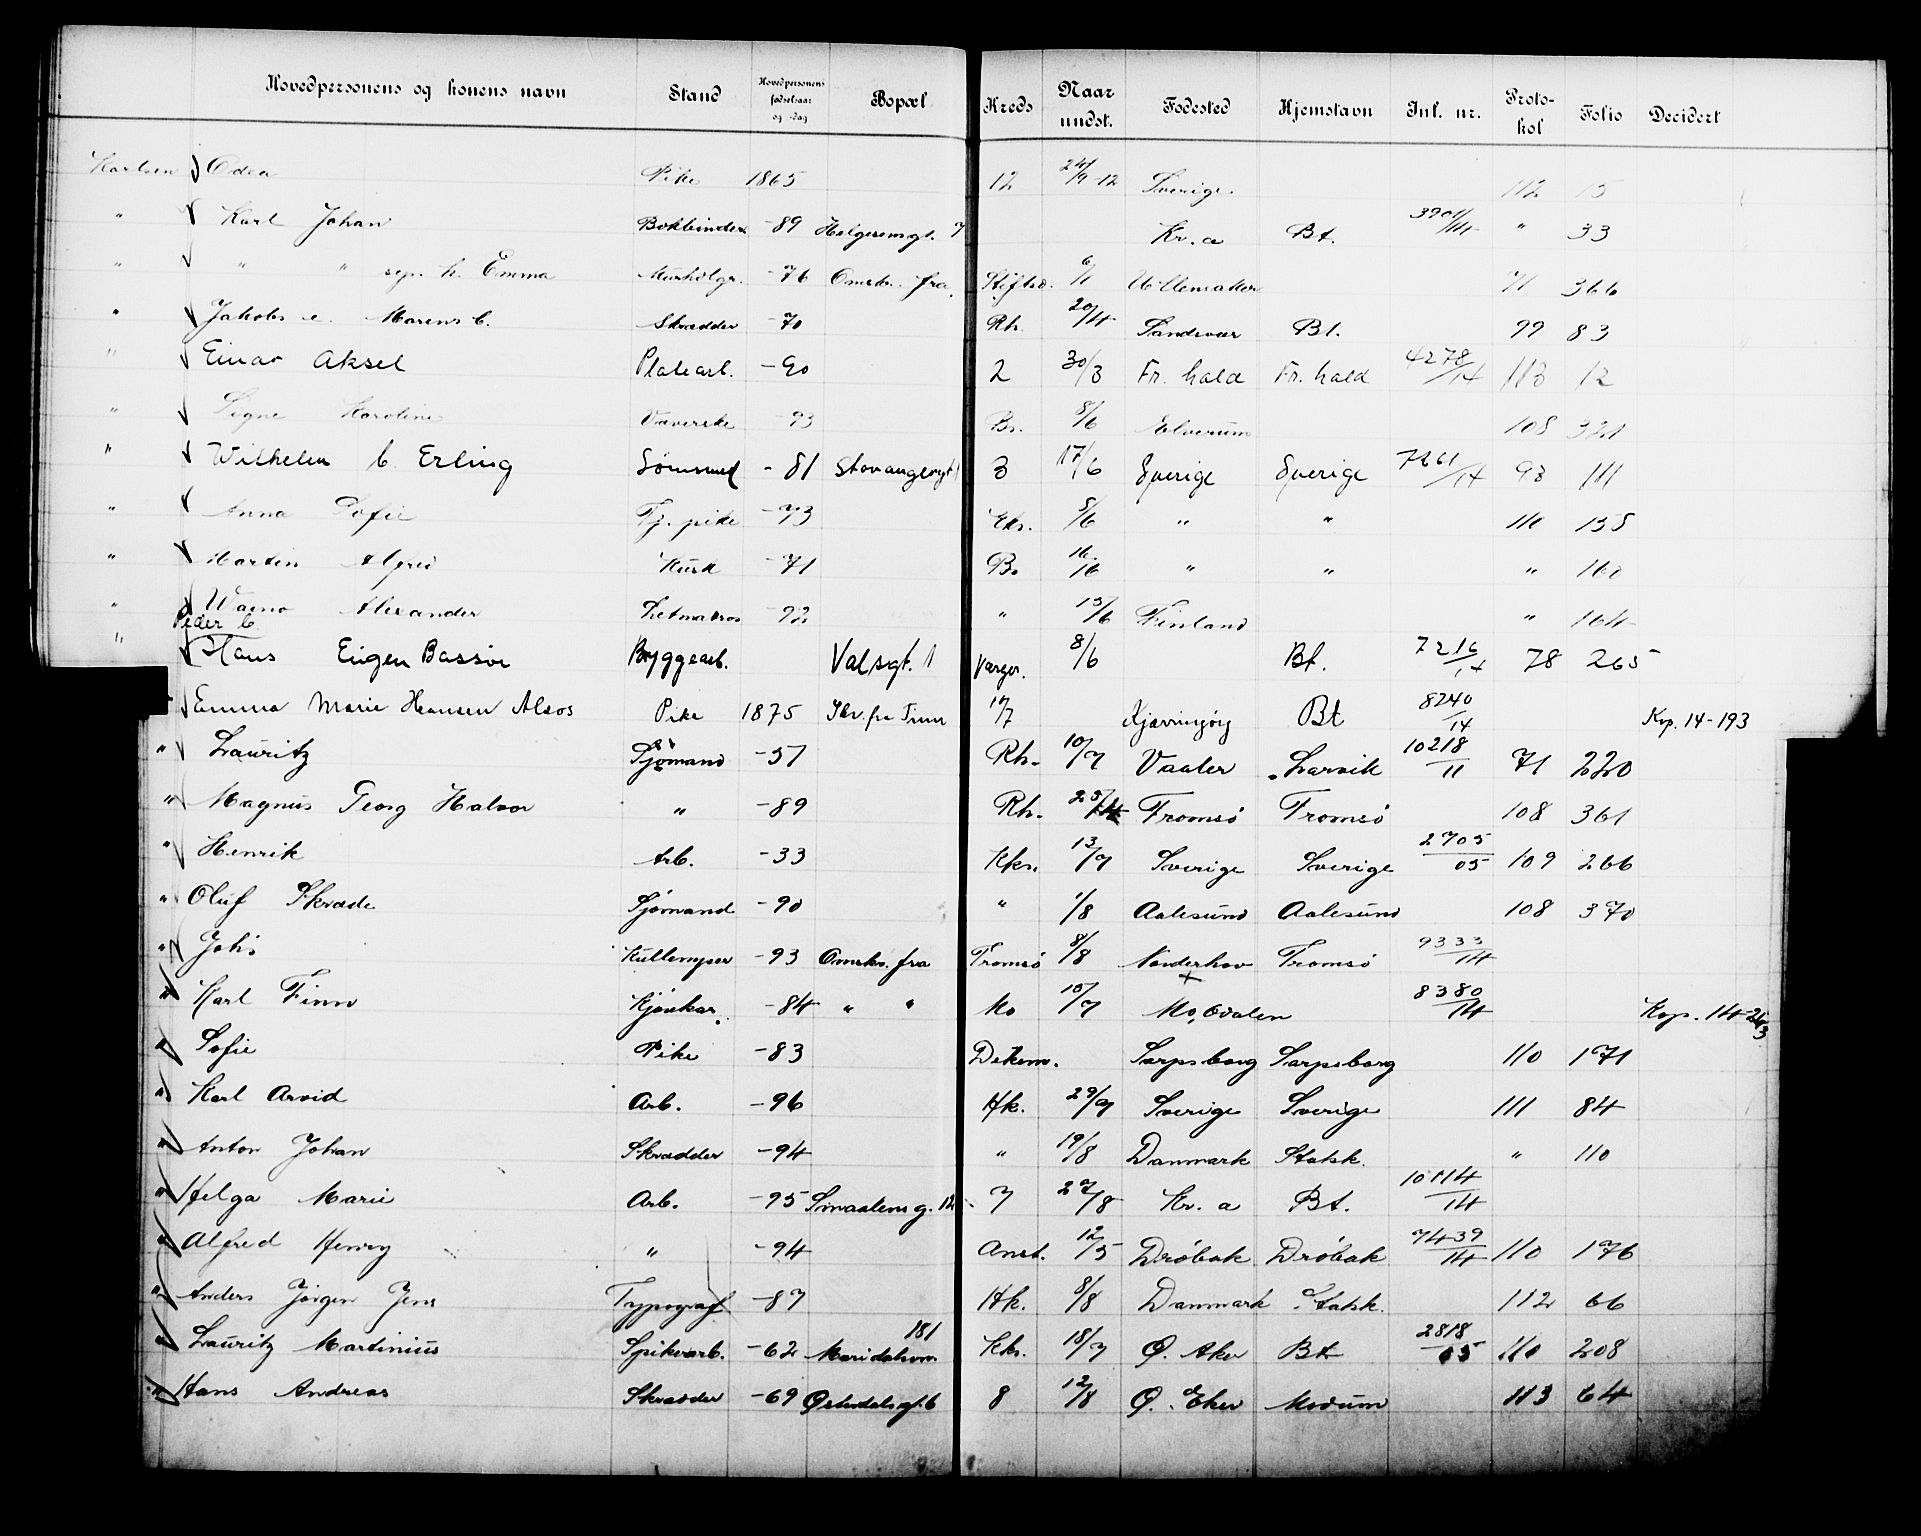 Hovedpersonens og konens navn Stand Hovedpersonens fødselsaar og -dag Bopæl Kreds Naar undst. Fødested Hjemstavn Inl. nr. Protokol Folio Decidert
Karlsen Odea Pike 1865 12 24/9-12 Sverige. 112 15
" Karl Johan Bokbinder -89 Helgesensgt. 7 Kr.a Bt. 3901/14 " 33
" " " sep. h. Emma -76 Omskr. fra Stiftsd. 6/1 Ullensaker 71 366
" Jakobs e. Marens b. Skrædder -70 Rh. 20/4 Sandsvær Bt. 99 83
" Einar Aksel Platearb. -90 2 30/3 Fr. hald Fr. hald 4278/14 113 12
" Signe Karoline Væverske -93 Br. 8/6 Elverum 108 321
" Wilhelm b. Erling Sømsmed -81 Stavangergt. 3 17/6 Sverige Sverige 7261/14 93 111
" Anna Sofie Tj. pike -73 Eks. 5/6 " " 110 158
" Martin Alfred Kusk -71 B. 16/6 " " " 160
" Waino Alexander Letmatros -92 " 15/6 Finland " 164
" Peder b. Hans Eugen Bassøe Bryggearb. Valsgt. 1 Varger. 8/6 Bt. 7216/14 78 265
" Emma Marie Hansen Alsos Pike 1875 Skr. fra Tinn 14/7 Kjærringøy Bt 8240/14 Kop. 14-193
" Lauritz Sjømand -57 Rh. 10/7 Vaaler Larvik 10218/11 71 220
" Magnus Georg Halvor " -89 Rh. 25/4 Tromsø Tromsø 108 361
" Henrik Arb. -33 Kks. 13/7 Sverige Sverige 2705/05 109 266
" Oluf Skrade Sjømand -90 " 1/8 Aalesund Aalesund 108 370
" Johs -93 Omskr. fra Tromsø 8/8 Norderhov Tromsø 9333/14
" Karl Finn -84 " " Mo 10/7 Mo, Odalen 8380/14 Kop. 14-243
" Sofie Pike -83 Dekom. Sarpsborg Sarpsborg 110 171
" Karl Arvid Arb. -96 Hk. 29/7 Sverige Sverige 111 84
" Anton Johan Skrædder -94 " 19/8 Danmark Statsk. " 110
" Helga Marie Arb. -95 Smaalensg. 12 7 27/8 Kr. a Bt. 10114/14
" Alfred Henry " -94 Anst. 12/5 Drøbak Drøbak 7439/14 110 176
" Anders Jørgen Jens Typograf -87 Hk. 8/8 Danmark Statsk. 112 66
" Lauritz Martinius Spikerarb. -62 Maridalsvn. 181 Kks. 18/7 Ø. Aker Bt 2818/05 110 208
" Hans Andreas Skrædder -69 Østerdalsgt. 6 8 12/8 Ø. Eker Modum 113 64